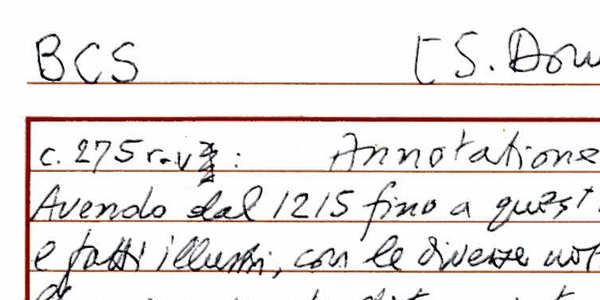 BCS [S. Dom
c. 275 r.v : Annotatione
Avendo dal 1215 fino a quest
e fatti illustri, con le diverse not